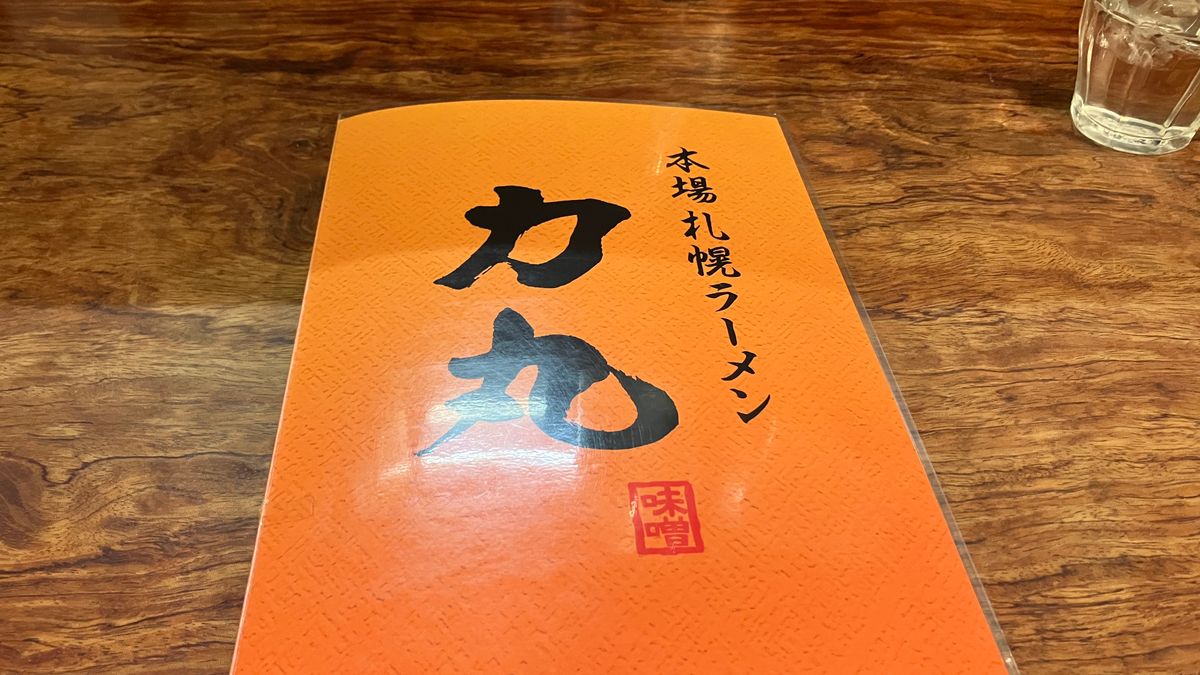 本場札幌ラーメン
力丸
味噌